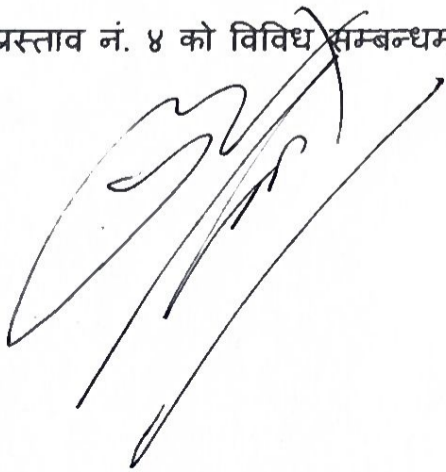 प्रस्ताव नं. ४ को विविध सम्बन्धम